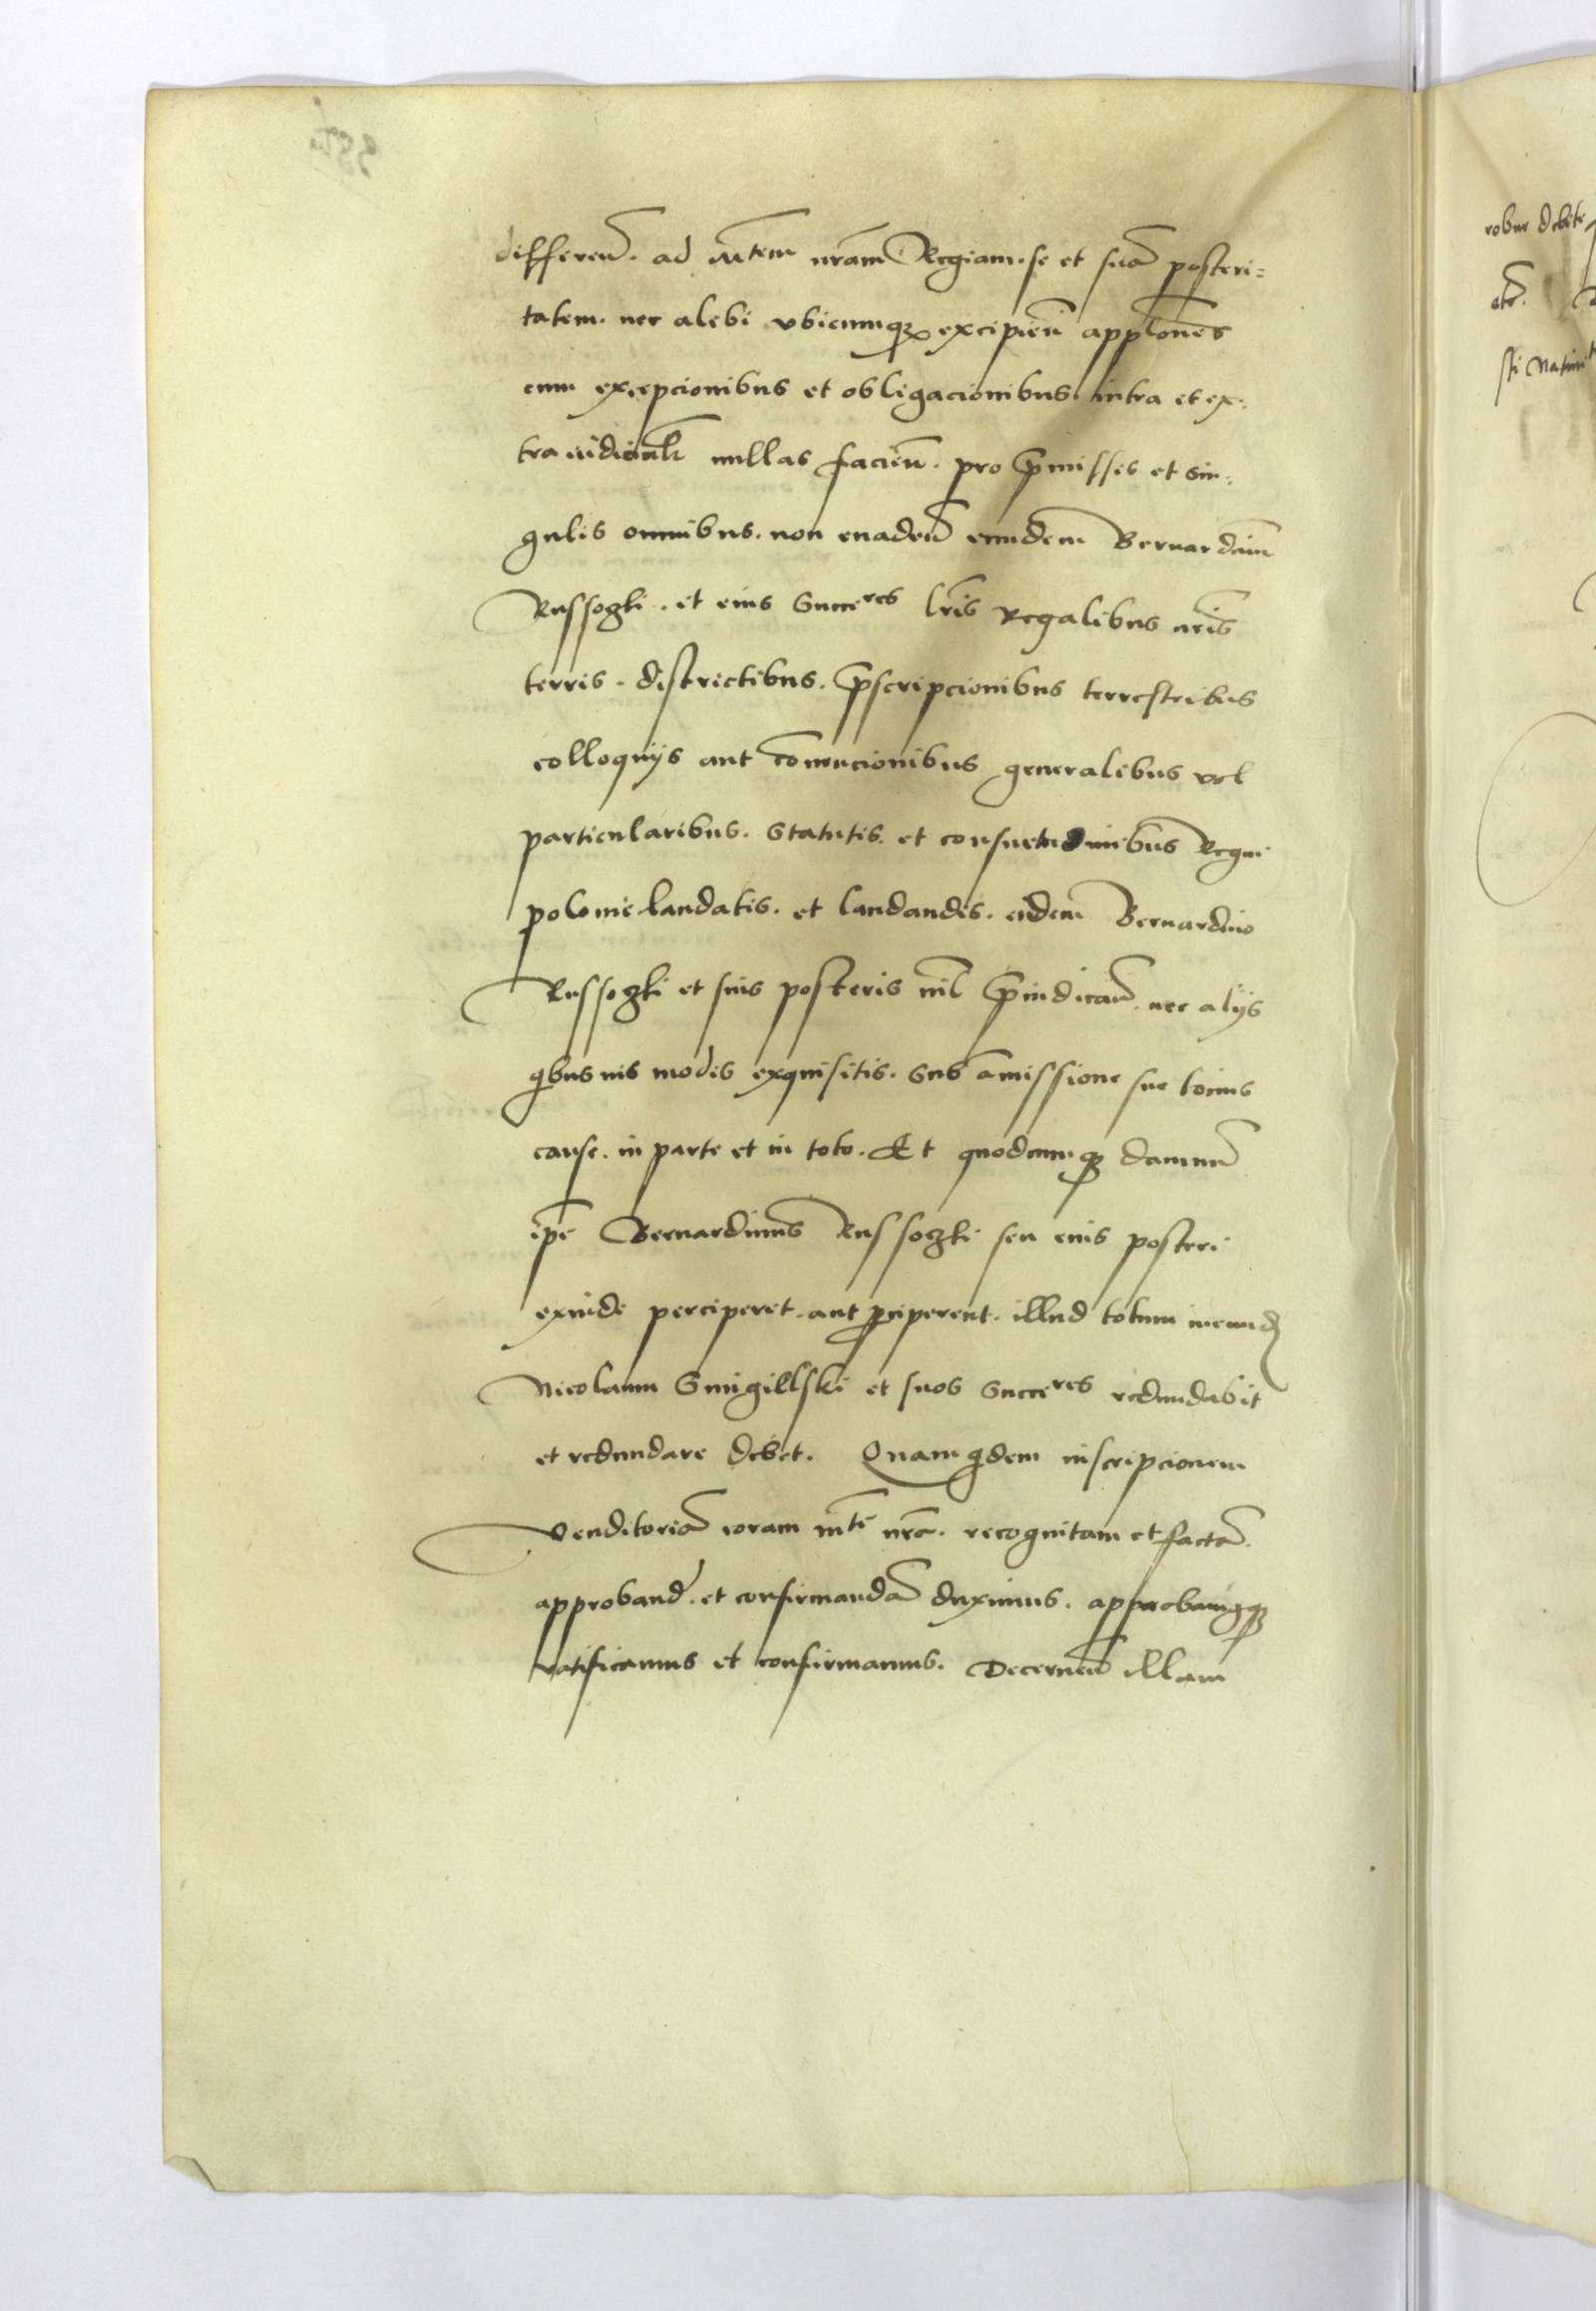 differen̄. ad Mtem nrām Regiam. se et suā posteri=
tatem. nec alibi vbicumqꝫ excipien̄ applōnes
cum excepcionibus et obligacionibus intra et ex=
tra nullas facien̄. pro p̄missis et sin=
gulis omnibus. non euaden̄ eundem Bernardinū
Russoczki. et eius Succeres lrīs Regalibus nrīs
terris. districtibus. p̄scripcionibus terrestribus
colloquijs aut cōuencionibus generalibus vel
particularibus. Statutis. et consuetudinibus Regni
polonie laudatis. et laudandis. eidem Bernardino
Russoczki et suis posteris nil p̄iudicān. nec alijs
qbusuis modis exquisitis. Sub āmissione sue tocius
cause. in parte et in toto. Et quodcumqꝫ damnū
ip̄e Bernardinus Russoczki seu eius posteri
exinde perciperet. aut ꝑciperent. illud totum in eund
Nicolaum Smigillski et suos Succeres redundabit
et redundare debet. Quam qdem inscripcionem
Venditoriā coram mte nrā. recognitam et factā.
approband. et confirmandā duximus. approbamqꝫ
ratificamus et confirmamus. Decernen̄ illam
robur debite
etc.
sti Natiui